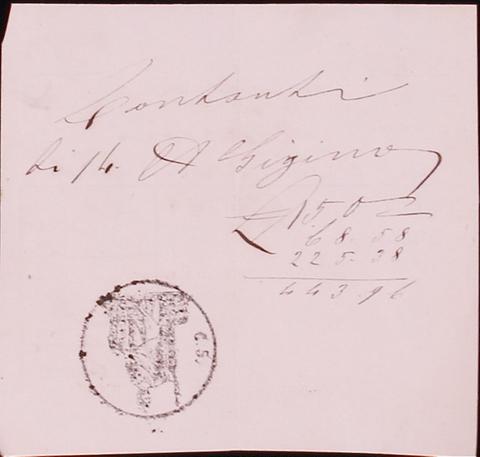 Contanti
di A Gigino
£ 150 –
68.58
225.38
443.96
C.S.